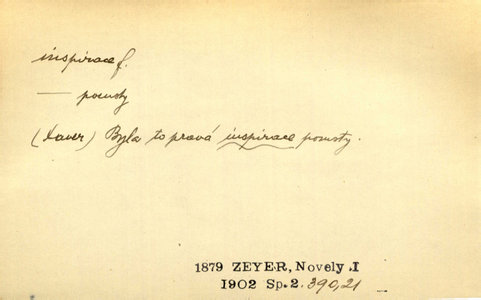 inspirace f.
— pomsty
(Xaver) Byla to pravá inspirace pomsty.
1879 ZEYER, Novely I
1902 Sp. 2. 390,21